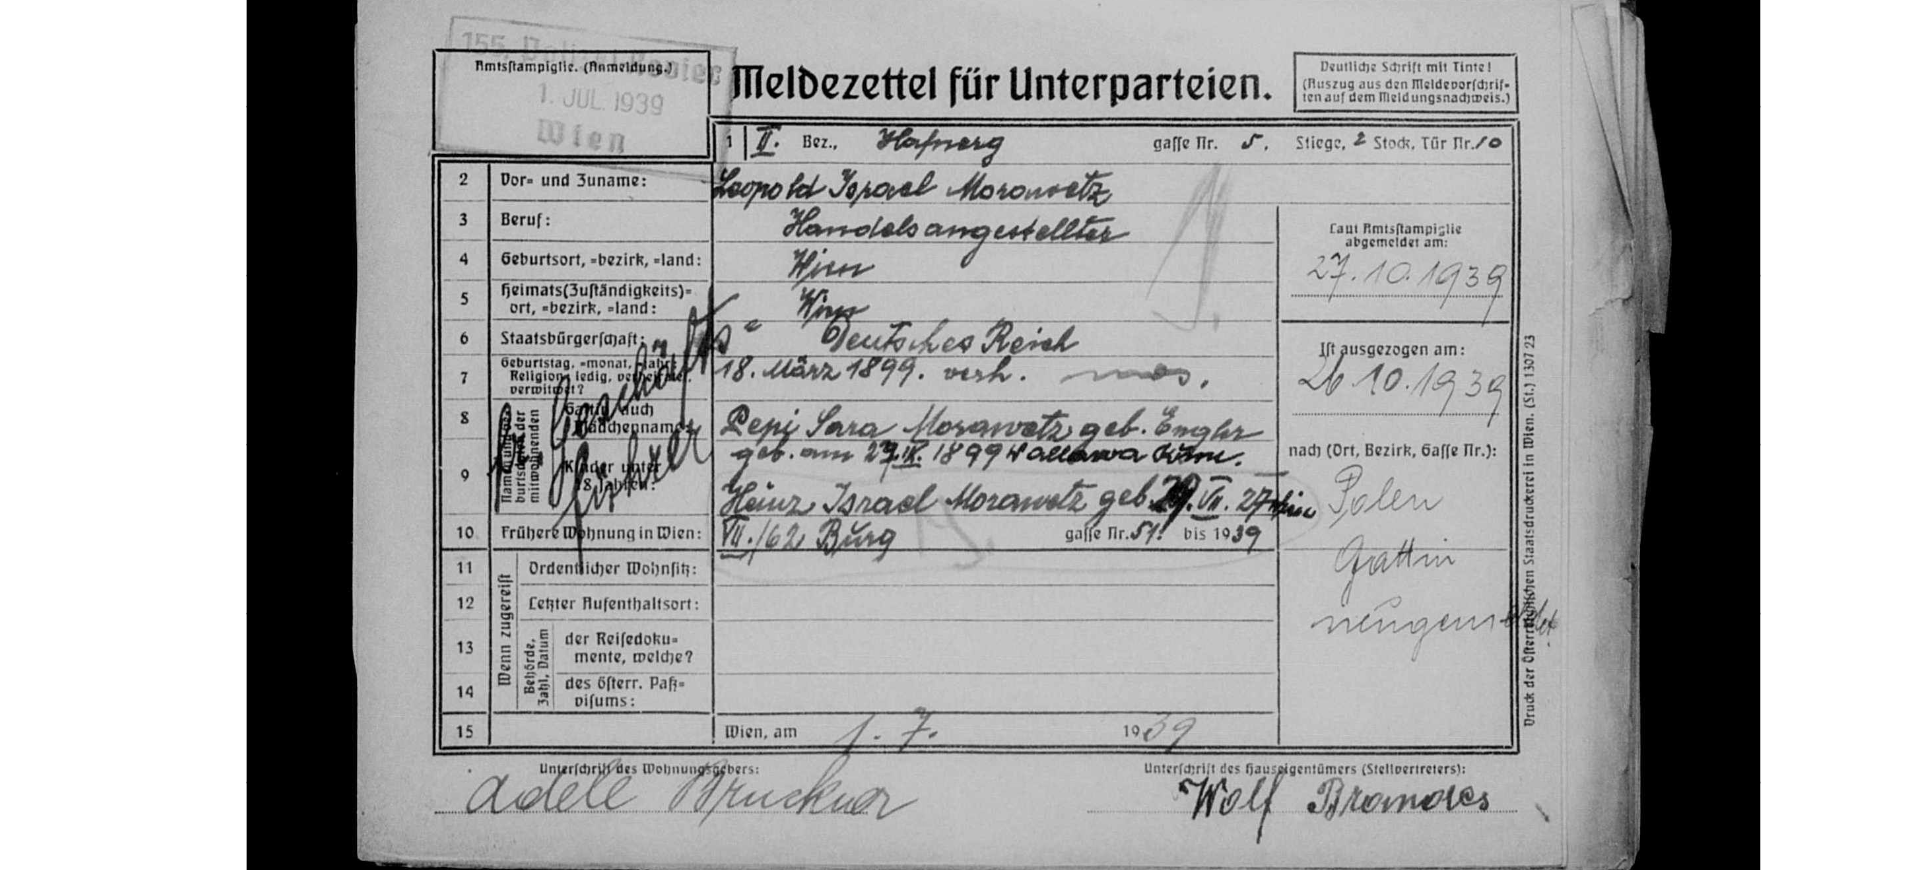 155. Polizei-Revier
Amtsstampiglie. (Anmeldung.)
1. JUL. 1939
Wien
Meldezettel für Unterparteien.
Deutliche Schrift mit Tinte!
(Auszug aus den Meldevorschrif-
ten auf dem Meldungsnachweis.)
1 II. Bez., Hafnerg gasse Nr. 5, Stiege, 2 Stock, Tür Nr. 10
2 Vor- und Zuname: Leopold Israel Morawetz
3 Beruf: Handelsangestellter
4 Geburtsort, -bezirk, -land: Wien
5 Heimats(Zuständigkeits)-
ort, -bezirk, -land: Wien
6 Staatsbürgerschaft: Deutsches Reich
7 Geburtstag, -monat, -jahr,
Religion, ledig, verheiratet,
verwitwet? 18. März 1899. verh. mos.
8 Gattin, auch
Mädchenname: Pepi Sara Morawetz geb. Engler
geb. am 29.IX. 1899
9 Kinder unter
18 Jahren: Heinz Israel Morawetz geb. 29. VII. 27 Wien
Namen und Ge-
burtsdaten der
mitwohnenden
10 Frühere Wohnung in Wien: VII./62 Burg gasse Nr. 51. bis 1939
Wenn zugereist
11 Ordentlicher Wohnsitz:
12 Letzter Aufenthaltsort:
Behörde,
Zahl, Datum
13 der Reisedoku-
mente, welche?
14 des österr. Paß-
visums:
15 Wien, am 1. 7. 1939
Laut Amtsstampiglie
abgemeldet am:
27.10.1939
Ist ausgezogen am:
26.10.1939
nach (Ort, Bezirk, Gasse Nr.):
Polen
Gattin
neugemeldet
Druck der Österreichischen Staatsdruckerei in Wien. (St.) 1307 23
Unterschrift des Wohnungsgebers:
Adele Bruckner
Unterschrift des Hauseigentümers (Stellvertreters):
Wolf Brandes